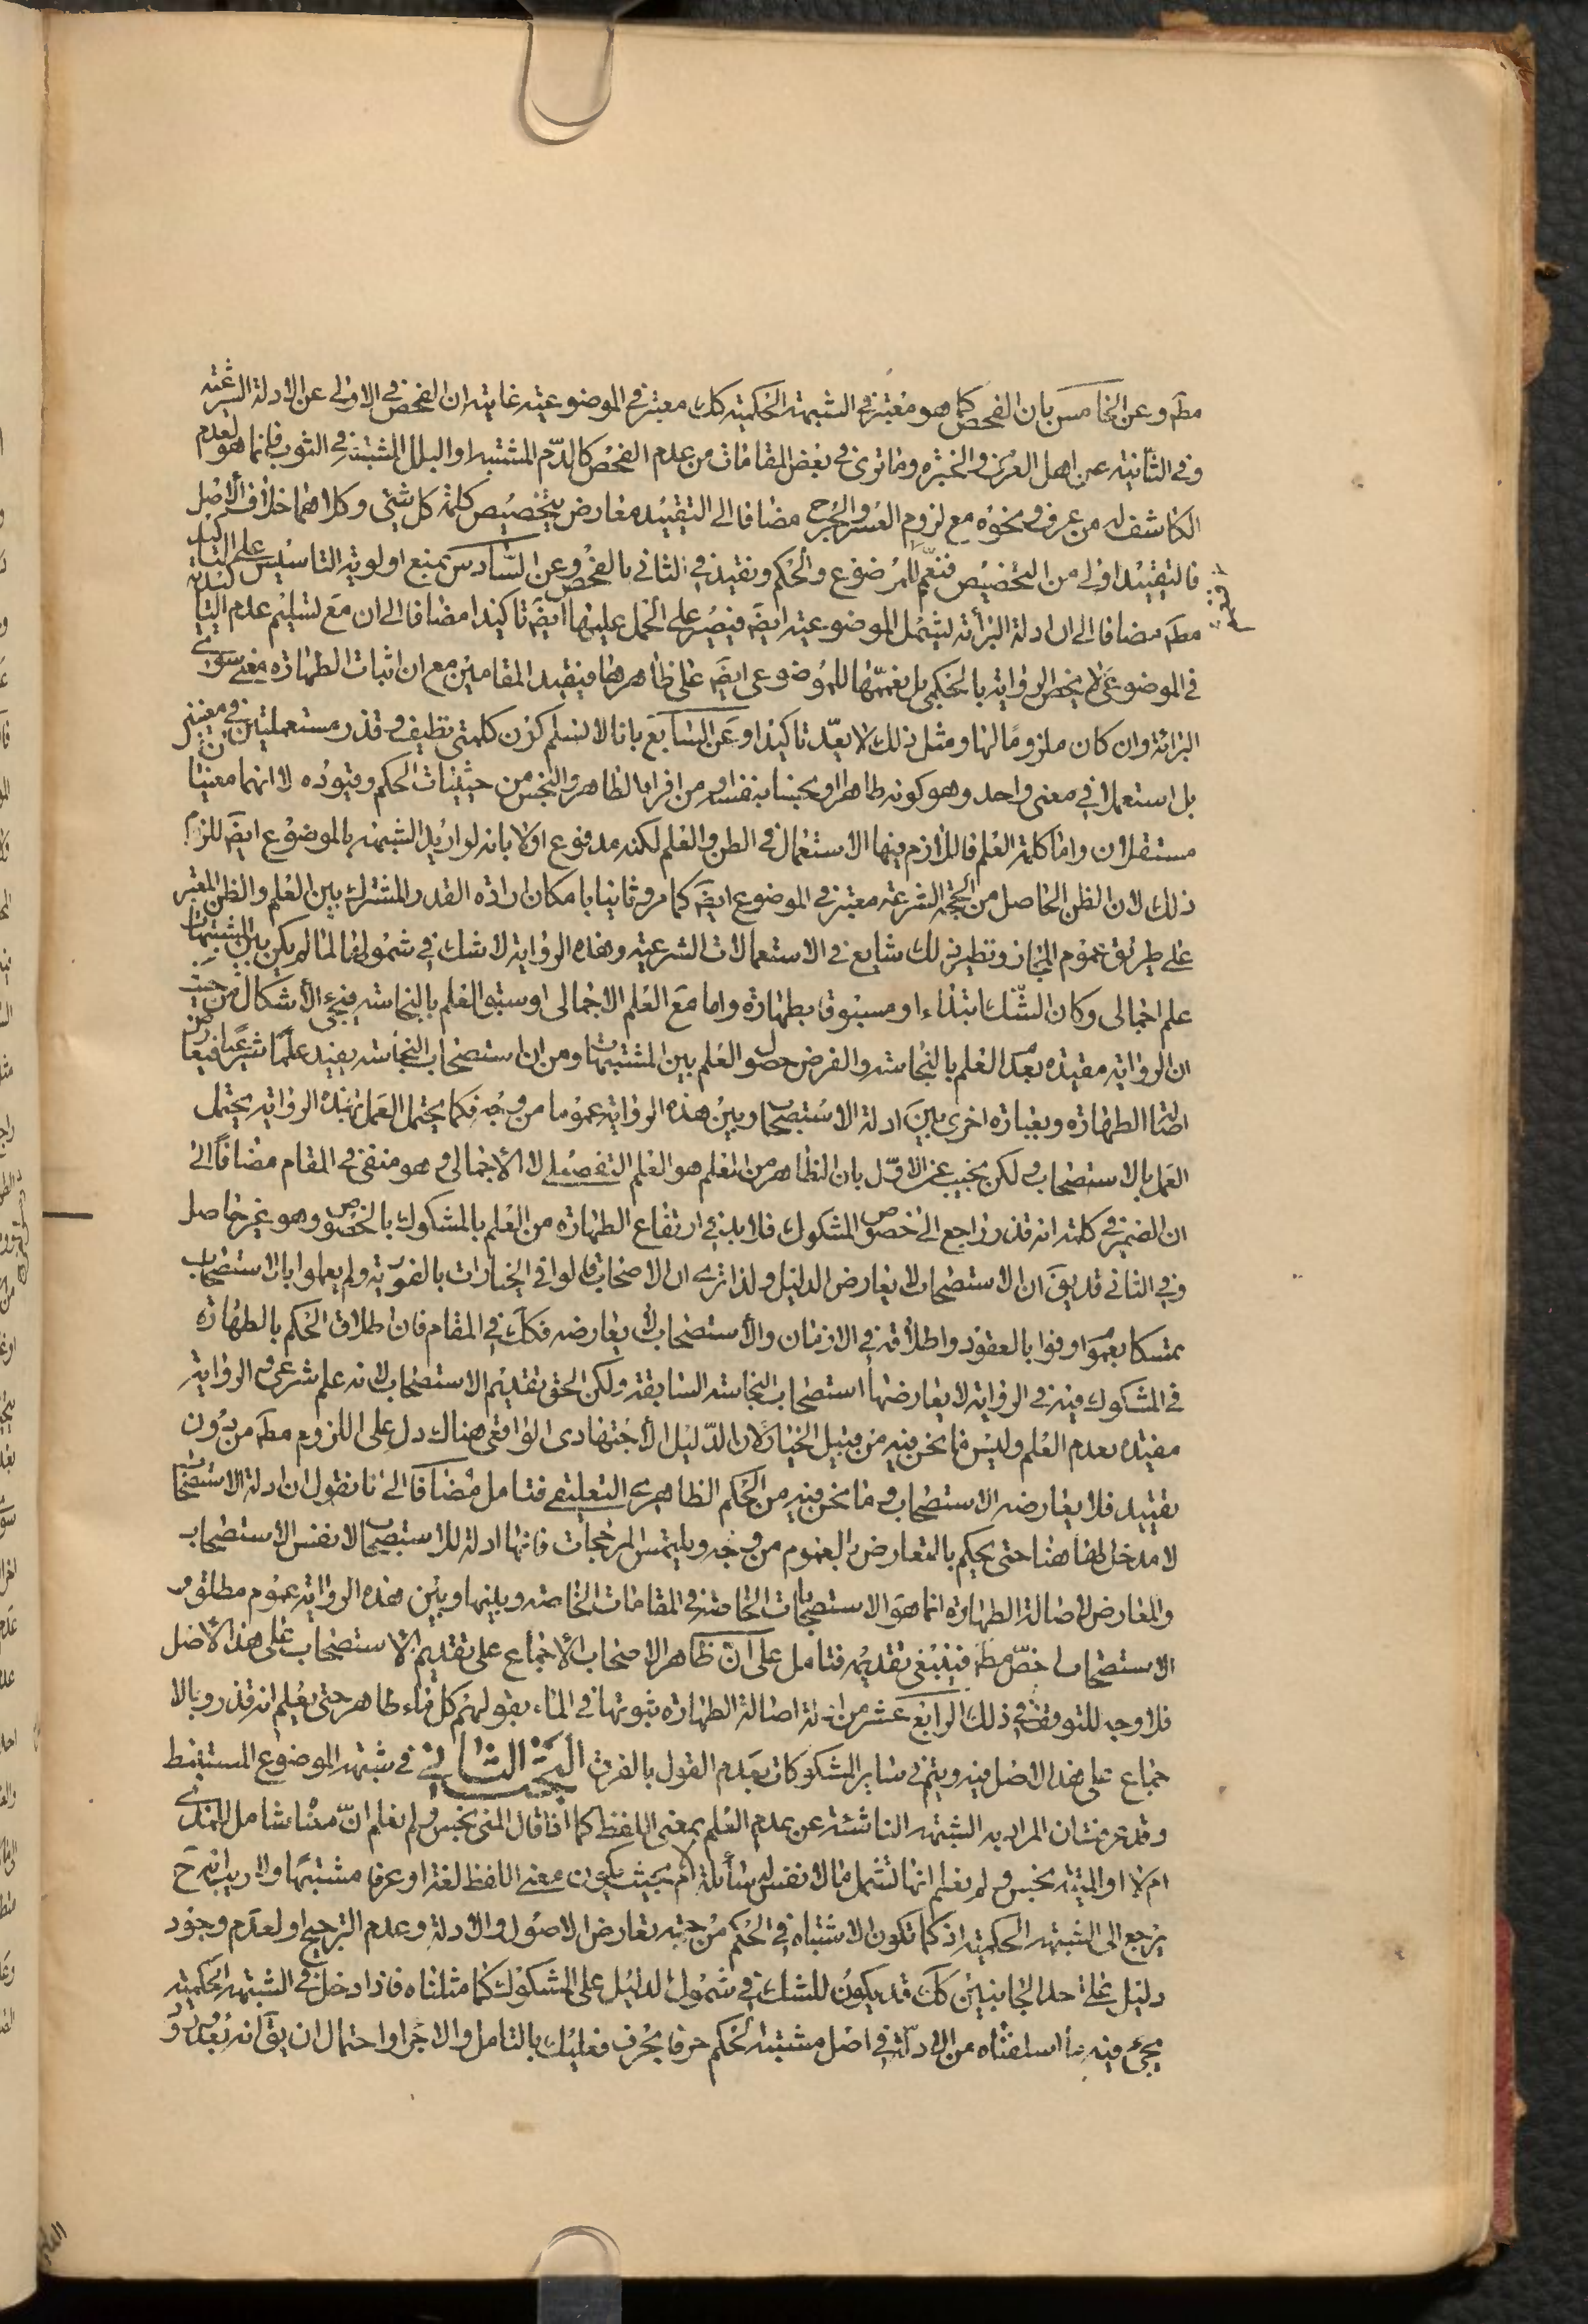 مطه وعن الخامس بان الفحص كما هو معتبر في الشبهة الحكميه كك معتبر في الموضوعيه غايته ان الفحص في الاولى عن الادلة الشرعية
وفي الثانيه عن اهل العرف والخبره وما ترى في بعض المقامات من عدم الفحص كالدّم المشتبه او البلل المشتبه في الثوب فانما هو لعدم
الكاشف له من عرف ونحوه مع لزوم العسر والحرج مضافا الى التقييد معارض بتخصيص كلمة كل شئ وكلاهما خلاف الأصل
فالتقييد اولى من التخصيص فنعمّم الموضوع والحكم ونقيد في الثاني بالفحص وعن السّادس بمنع اولوية التاسيس على التاكيد
مطه مضافا الى ان ادلة البرائة لتشمل الموضوعيه ايضَ فيصير على الحمل عليها ايضَ تاكيدا مضافا الى ان مع تسليم عدم التاكيد
في الموضوعي لا يخص الروايه بالحكمى بل يعممها للموضوعى ايضَ على ظاهرها فيقيد المقامين مع ان اثبات الطهاره معنى سوى
البرائة وان كان ملزوما لها ومثل ذلك لا يعدّ تاكيدا وعن السّابع بانا لا نسلم كون كلمتى نظيف وقذر مستعملتين في معنيين
بل استعملا في معنى واحد وهو كونه طاهرا ونجسا بنفسه او من افراد الطاهر والنجس من حيثيات الحكم وقيوده لا انهما معنيان
مستقلان واما كلمة العلم فاللازم فيها الاستعمال في الظن والعلم لكنه مدفوع اولا بانه لو اريد الشبهة بالموضوع ايضَ للزم
ذلك لان الظن الحاصل من الحجة الشرعية معتبر في الموضوع ايضَ كما مر وثانيا بامكان ارادة القدر المشترك بين العلم والظن المعتبر
على طريق عموم المجاز ونظير ذلك شايع في الاستعمالات الشرعيه وهذه الروايه لا شك في شمولها لما لم يكن بين المشتبهات
علم اجمالى وكان الشّك ابتداء او مسبوقا بطهارة واما مع العلم الاجمالى او سبق العلم بالنجاسة فيجئ الأشكال من حيث
ان الروايه مقيده بعدم العلم بالنجاسة والفرض حصول العلم بين المشتبهات ومن ان استصحاب النجاسه يفيد علمًا شرعيًا فيعارض
اصالة الطهاره وبعباره اخرى بين ادلة الاستصحاب وبين هذه الروايه عموما من وجه فكما يحتمل العمل بهذه الروايه يحتمل
العمل بالاستصحاب ولكن نجيب عن الاوّل بان الظاهر من العلم هو العلم التفصيلى لا الأجمالى وهو منتفى في المقام مضافًا الى
ان الضمير في كلمة انه قذر راجع الى خصوص المشكوك فلابد في ارتفاع الطهاره من العلم بالمشكوك بالخصوص وهو غير حاصل
وفي الثانى قد يقَ ان الاستصحاب لا يعارض الدليل ولذا ترى ان الاصحاب قالوا في الخيارات بالفوريه ولم يعملوا بالاستصحاب
تمسكا بعموم اوفوا بالعقود واطلاقه في الازمان والأستصحاب لا يعارضه فكك في المقام فان اطلاق الحكم بالطهاره
في المشكوك فيه في الروايه لا يعارضها استصحاب النجاسه السابقه ولكن الحق تقديم الاستصحاب لانه علم شرعى والروايه
مقيده بعدم العلم وليس ما نحن فيه من قبيل الخيار لان الدّليل الأجتهادى الواقعى هناك دل على اللزوم مطه من بدون
تقييد فلا يعارضه الاستصحاب وما نحن فيه من الحكم الظاهرى التعليقى فتامل مُضافا الى انا نقول ان ادلة الاستصحاب
لا مدخل لها هنا حتى يحكم بالتعارض بالعموم من وجه ويلتمس المرجحات فانها ادلة للاستصحاب لا نفس الاستصحاب
والمعارض لاصالة الطهارة انما هو الاستصحابات الخاصه في المقامات الخاصه وبينها وبين هذه الروايه عموم مطلق و
الاستصحاب اخصّ مطه فينبغى تقديمه فتامل على انّ ظاهر الاصحاب الأجماع على تقديم الأستصحاب على هذا الأصل
فلا وجه للتوقف في ذلك الرابع عشر من ادلة اصالة الطهاره ثبوتها في الماء بقولهم كل ماء طاهر حتى يعلم انه قذر وبالا
جماع على هذا الاصل فيه ويتم في ساير المشكوكات بعدم القول بالفرق البحث الثانى في شبهة الموضوع المستنبط
وقد عرفت ان المراد به الشبهة الناشئة عن عدم العلم بمعنى اللفظ كما اذا قال المنى نجس ولم نعلم انّ معناه شامل للمذى
ام لا او الميتة نجس ولم نعلم انها تشمل ما لا نفس له سائلة ام لا بحيث يكون معنى اللفظ لغة او عرفا مشتبها ولا ريب انه حَ
يرجع الى الشبهة الحكميه اذ كما تكون الاشتباه في الحكم من جهة تعارض الاصول والأدلة وعدم الترجيح او لعدم وجود
دليل على احد الجانبين كك قد يكون للشك في شمول الدليل على المشكوك كما مثلناه فاذا دخل في الشبهة الحكميه
يجئ فيه ما اسلفناه من الادلّة في اصل مشتبه الحكم حرفا بحرف فعليك بالتامل والاجراء واحتمال ان يقَ انه بعد ورود